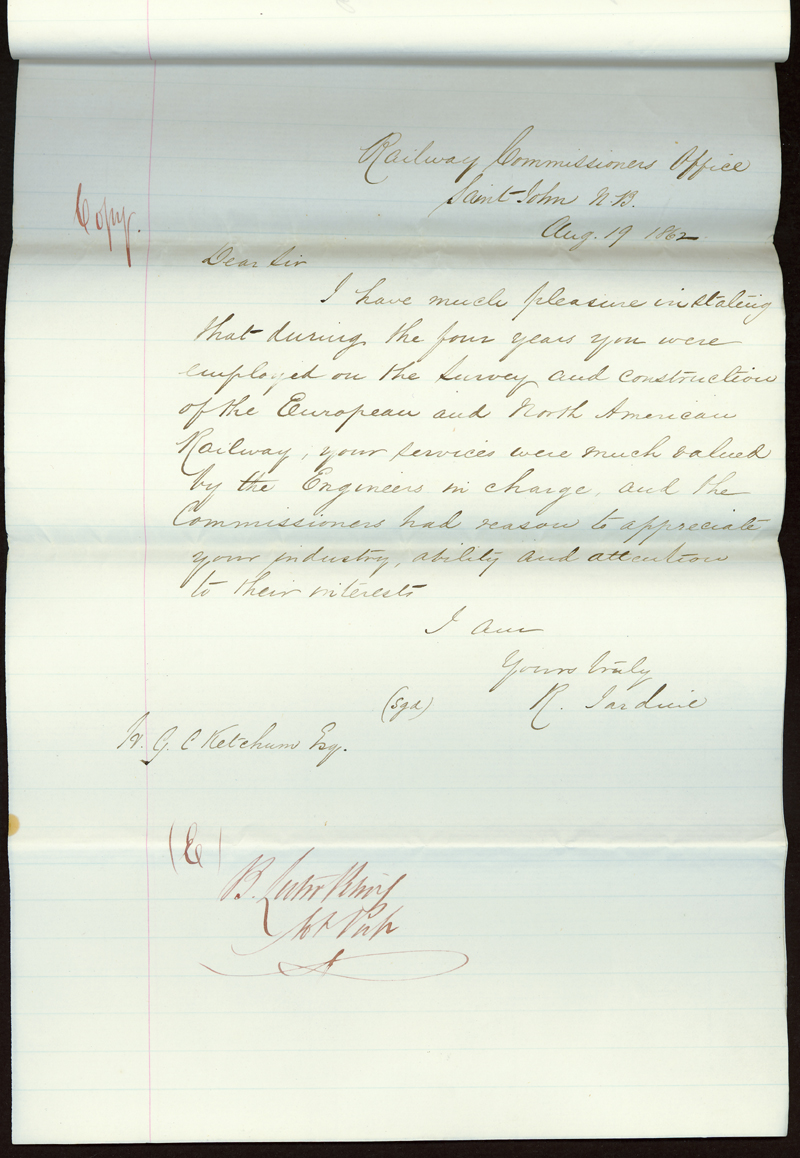 Railway Commissioners' Office
Saint John N.B.
Aug. 19 1862
Copy.
Dear Sir
I have much pleasure in stating
that during the four years you were
employed on the Survey and construction
of the European and North American
Railway, your services were much valued
by the Engineers in charge, and the
Commissioners had reason to appreciate
your industry, ability and attention
to their interests
I am
Yours truly
(sgd) R. Jardine
H. G. C Ketchum Esq.
(E)
B.
Not Pub